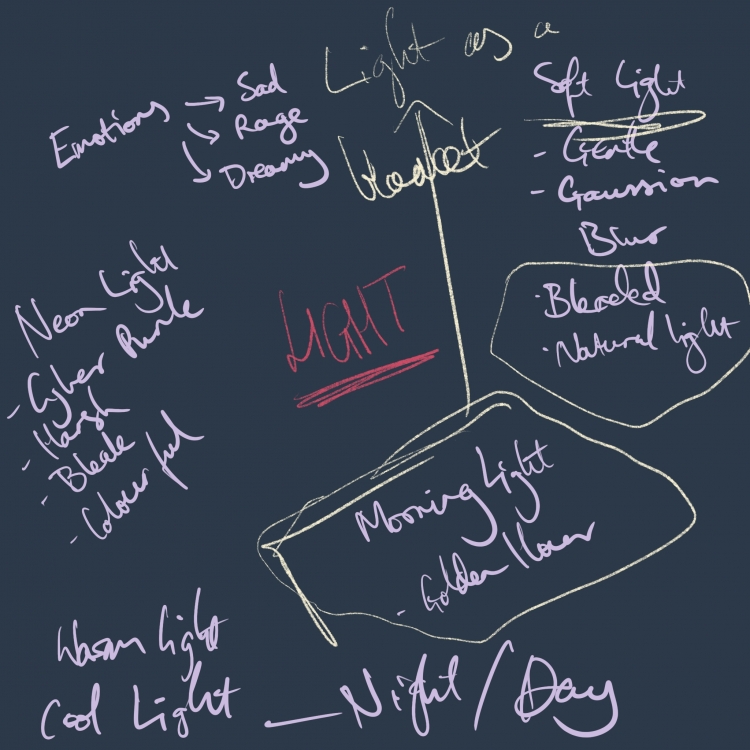 Light as a
blanket
Emotions → Sad
Rage
Dreamy
Soft Light
- Gentle
- Gaussian
Blur
· Blended
· Natural Light
LIGHT
Neon Light
- Cyber Punk
- Harsh
- Bleak
- Colourful
Morning Light
- Golden Hour
Warm Light
Cool Light — Night / Day